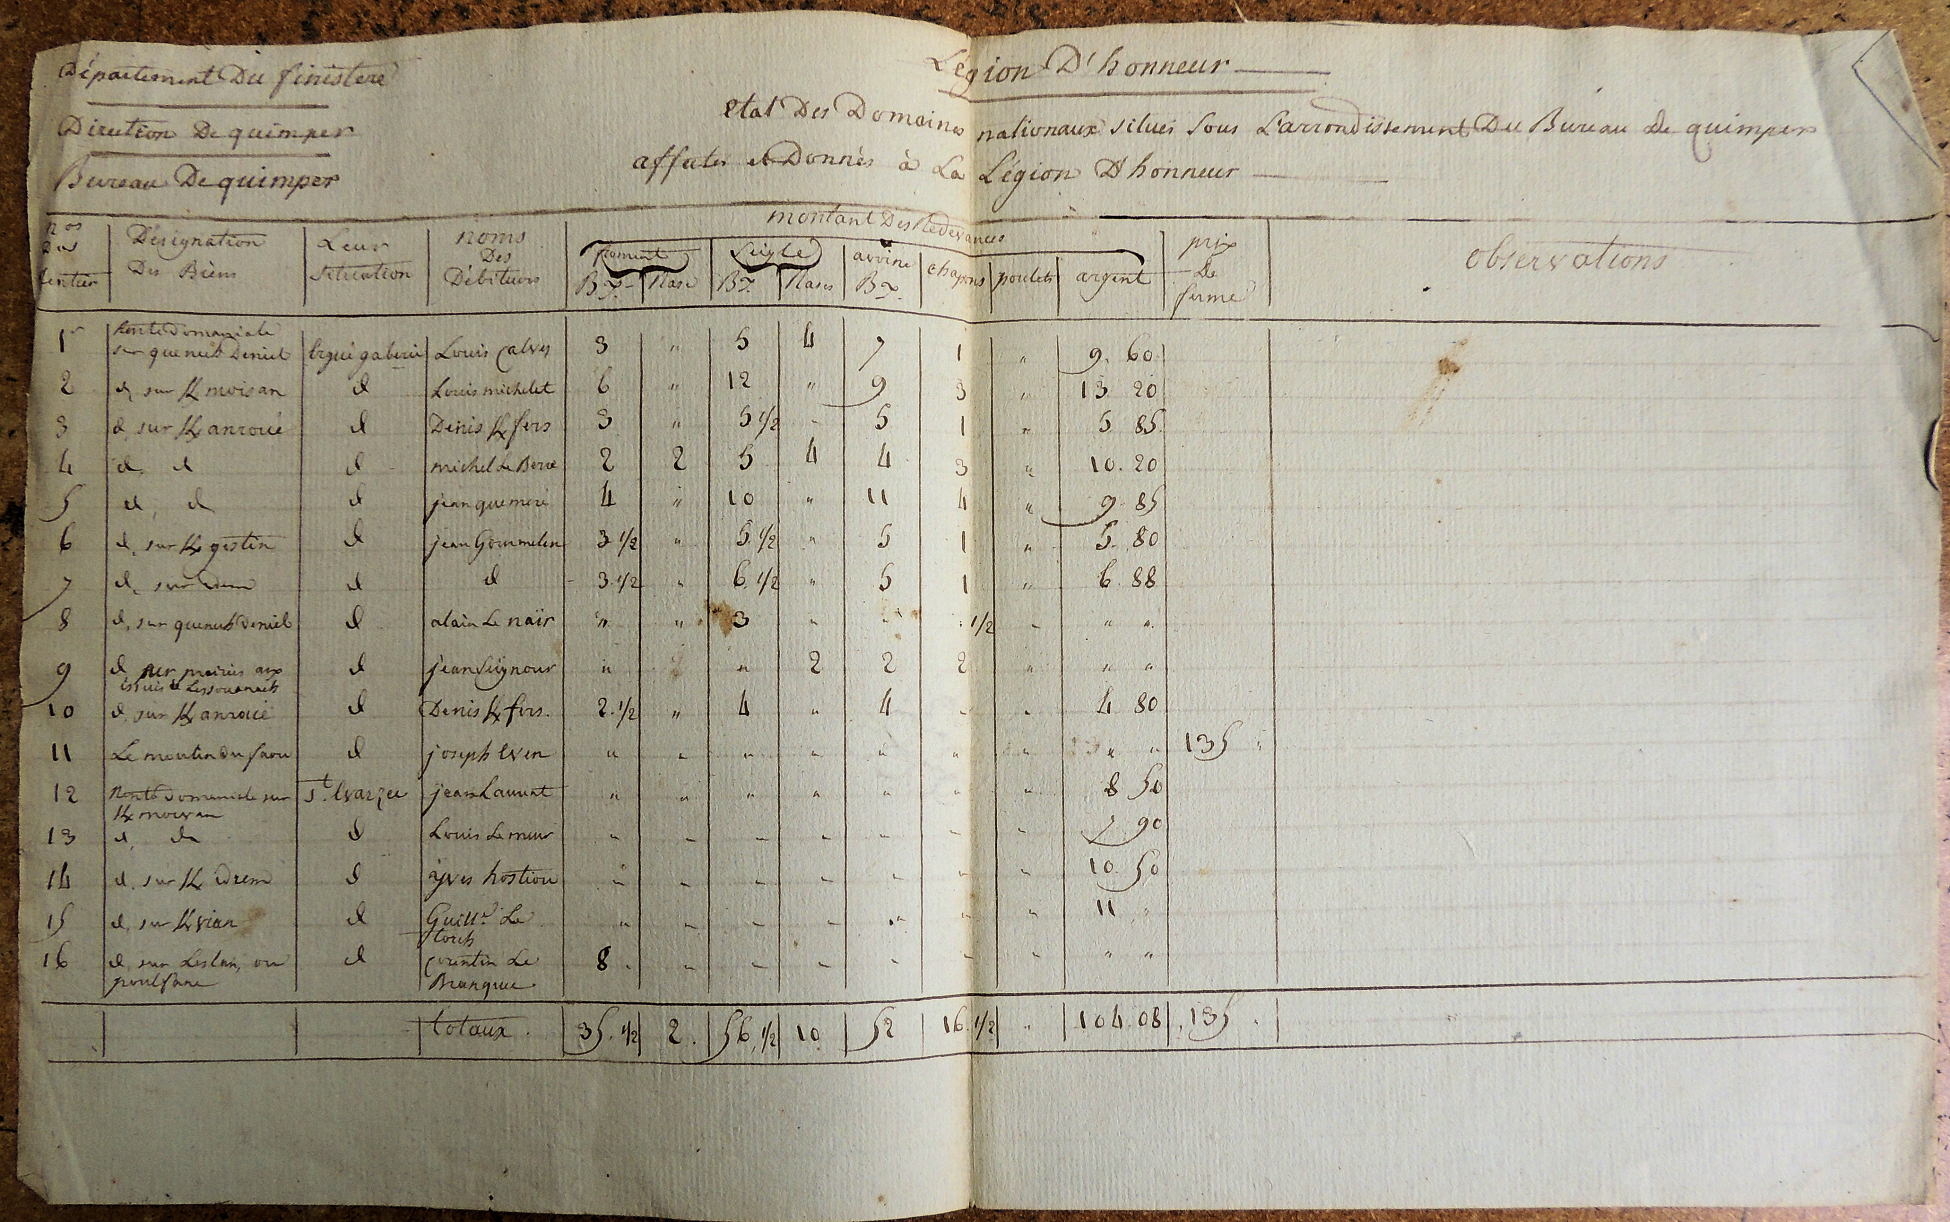 Département Du finistere
Direction De quimper
Bureau De quimper
Légion D'honneur
etat Des Domaines nationaux situés sous L'arrondissement Du Bureau de quimper
affectés et Donnés à La Légion D'honneur
nos Des Sentier | Désignation Des Biens | Leur situation | noms Des Débiteurs | montant Des Redevances | prix De ferme | observations
froment | Seigle | avoine | chapons | poulets | argent
Bx. | Rases | Bx. | Rases | Bx.
1r | Rente domaniale sur quenech Deniel | Ergué gaberic | Louis Calvez | 3 | " | 5 | 4 | 7 | 1 | " | 9. 60
2 | d. sur K/moisan | d | Louis michelet | 6 | " | 12 | " | 9 | 3 | " | 13 20
3 | d. sur K/anroué | d | Denis K/fors | 3 | " | 5 1/2 | " | 5 | 1 | " | 5 85
4 | d. d | d | michel Le Berre | 2 | 2 | 5 | 4 | 4 | 3 | " | 10. 20
5 | d. d | d | jean quemeré | 4 | " | 10 | " | 11 | 4 | " | 9 85
6 | d. sur K/gestin | d | jean Gourmelen | 3 1/2 | " | 5 1/2 | " | 5 | 1 | " | 5. 80
7 | d. sur idem | d | d | 3 1/2 | " | 6 1/2 | " | 5 | 1 | " | 6 88
8 | d. sur quenech Deniel | d | alain Le naïr | " | " | 3 | " | " | 1/2 | " | " "
9 | d. sur prairies aux issues de Lessouanach | d | jean Seignour | " | " | " | 2 | 2 | 2 | " | " "
10 | d. sur K/anroué | d | Denis K/fors. | 2 1/2 | " | 4 | " | 4 | " | " | 4 80
11 | Le moulin du faou | d | joseph Even | " | " | " | " | " | " | " | " " | 135 "
12 | Rente domaniale sur K/morvan | St. Evarzec | jean Laurat | " | " | " | " | " | " | " | 8 50
13 | d. d | d | Louis Le meur | " | " | " | " | " | " | " | 7 90
14 | d. sur K/idrem | d | yves hostiou | " | " | " | " | " | " | " | 10 50
15 | d. sur K/vian | d | Guille. Le floch | " | " | " | " | " | " | " | 11 "
16 | d. sur Leslan, ou poulfanc | d | Corentin Le Branquec | 8 | " | " | " | " | " | " | " "
totaux. | 35. 1/2 | 2. | 56 1/2 | 10 | 52 | 16. 1/2 | " | 104. 08 | 135